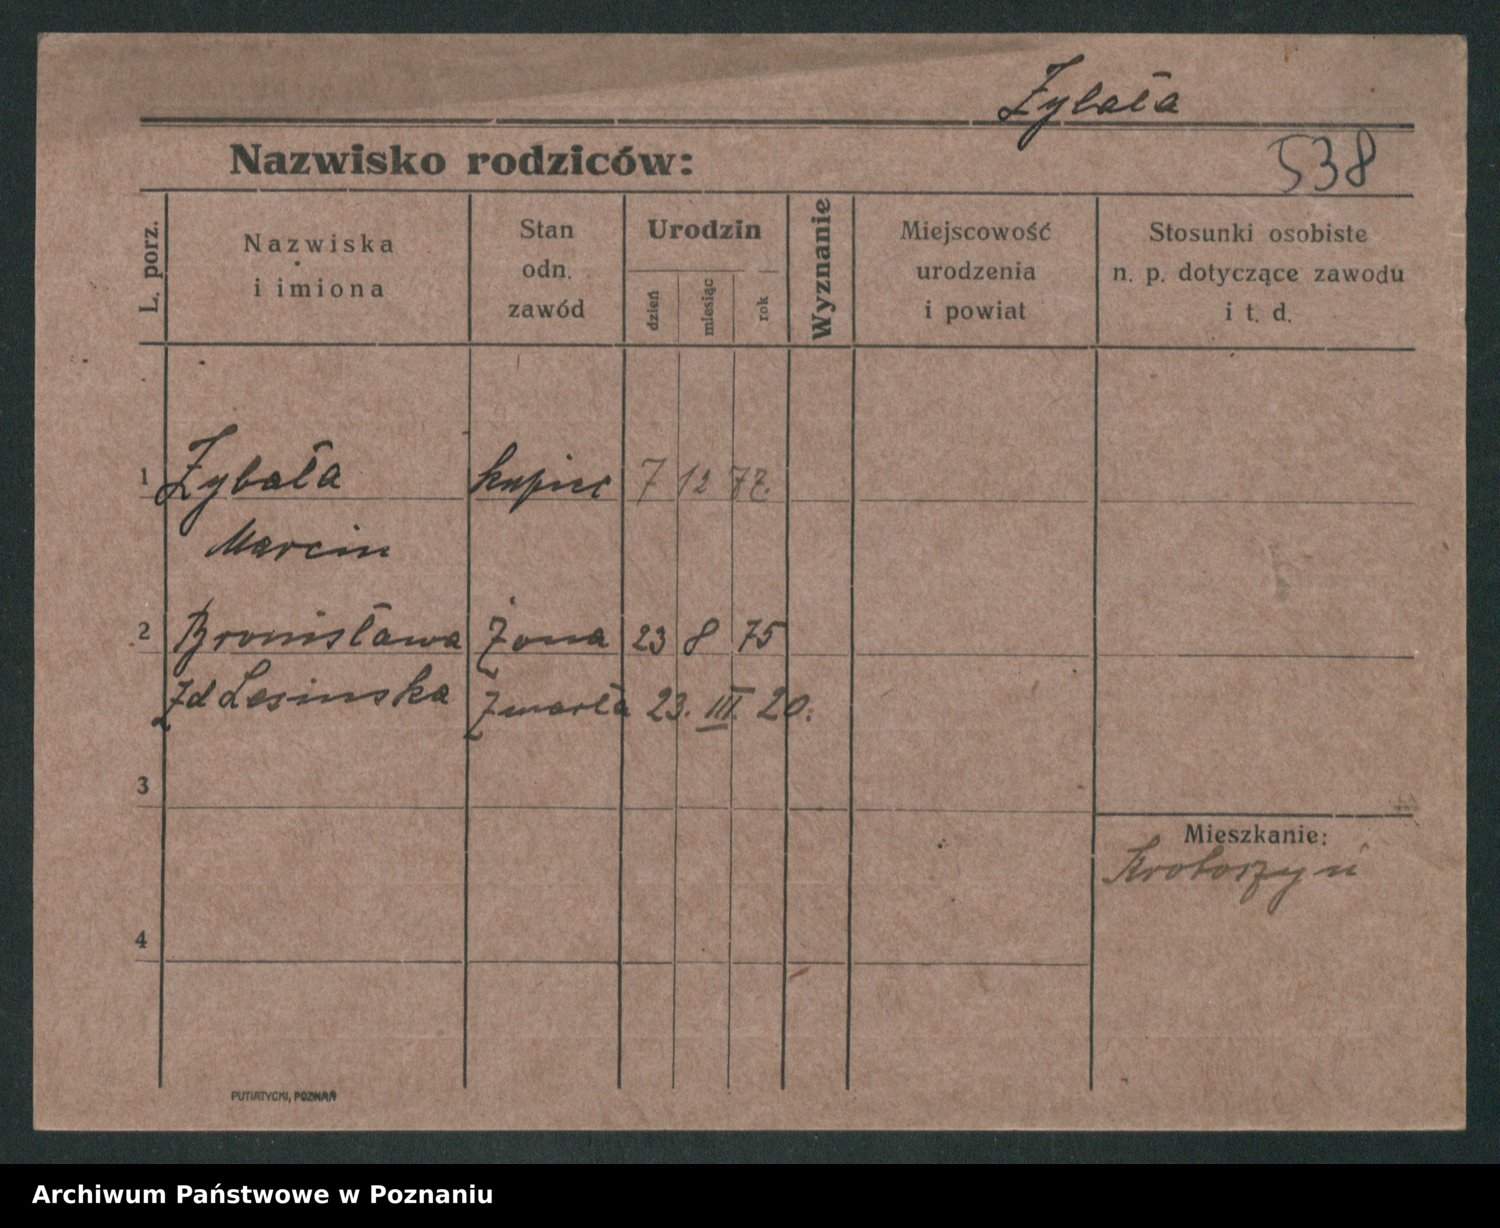 Zybała
Nazwisko rodziców:
538
L. porz.
Nazwiska
i imiona
Stan
odn.
zawód
Urodzin
dzień
miesiąc
rok
Wyznanie
Miejscowość
urodzenia
i powiat
Stosunki osobiste
n. p. dotyczące zawodu
i t. d.
1 Zybała kupiec 7 12 77.
Marcin
2 Bronisława Żona 23 8 75
Zd Lesinska Zmarła 23. III. 20.
3
Mieszkanie:
Krotoszyń
4
PUTIATYCKI, POZNAŃ
Archiwum Państwowe w Poznaniu